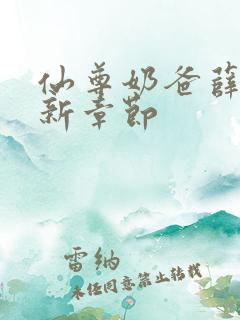 仙尊奶爸薛
新章节
雷纳
未经同意禁止转载